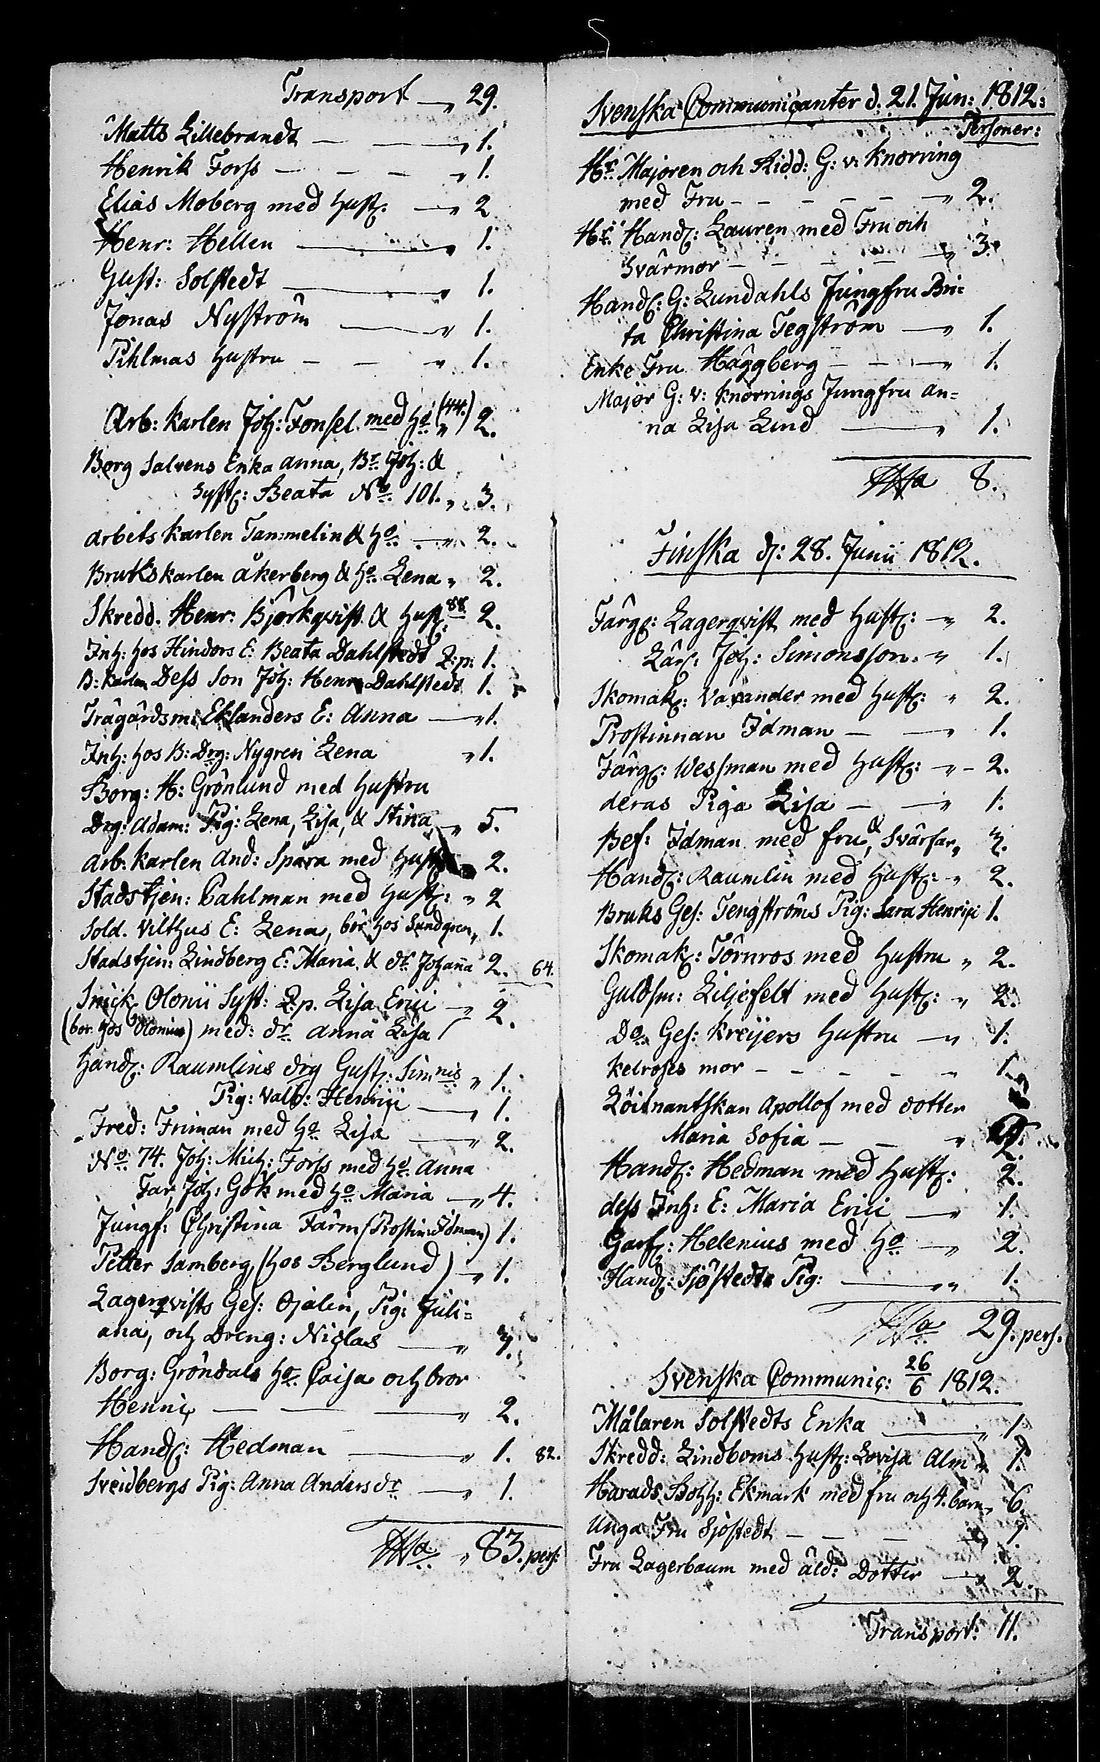 Transport — 29.
Matts Lillebrandt — — „ 1.
Henrik Forss — — — „ 1.
Elias Moberg med Hust: — „ 2
Henr: Hellen — „ 1.
Gust: Solstedt — „ 1.
Jonas Nyström — „ 1.
Pihlmas Hustru — — „ 1.
Arb: Karlen Joh: Fonsel med Ho (44.) „ 2.
Borg Salvens Enka Anna, Br. Joh: &
Syst: Beata No 101. „ 3.
Arbets karlen Tammelin & Ho — „ 2.
Brukskarlen Åkerberg & Ho Lena „ 2.
Skredd. Henr: Björkqvist & Hust: 88 2.
Inh: hos Hinders E: Beata Dahlstedt Q:p: 1.
B: Karlen Dess Son Joh: Henr Dahlstedt 1.
Trägårdsm: Eklanders E: Anna — „ 1.
Inh: hos B: Drg: Nygren Lena „ 1.
Borg: H: Grönlund med Hustru
Drg: Adam: Pig: Lena, Lisa, & Stina „ 5.
Arb: karlen And: Spåra med Hust: 2.
Stadstjen: Dahlman med Hust: „ 2
Sold. Vilthus E: Lena, bor hos Sundgren „ 1.
Stadstjen: Lindberg E: Maria, & dr Johanna 2. 64.
Snick Olonii Syst: Q.p. Lisa Erici — „ 2.
(bor hos Olonius) med: dr Anna Lisa
Handl: Raumlins drg Gust: Simnis „ 1.
Pig: Valb: Henrici — „ 1.
Fred: Friman med Ho Lisa — „ 2.
No 74. Joh: Mich: Forss med Ho Anna
Far Joh: Gök med Ho Maria — „ 4.
Jungf: Christina Färm (Prostin: Idman) 1.
Petter Samberg, (hos Berglund) — „ 1.
Lagerqvists Ges: Ojalin, Pig: Juli=
ana, och Dreng: Niclas — „ 3.
Borg: Gröndals Ho Caisa och bror
Henric — — „ 2.
Handl: Hedman — „ 1. 82.
Sveidbergs Pig: Anna Anders dr — „ 1.
Sa „ 83. pers:
Svenska Communicanter d. 21. Jun: 1812:
Personer:
Hr Majoren och Ridd: G: v: Knorring
med Fru — — — „ 2.
Hr Handl: Lauren med Fru och
Svärmor — — — „ 3.
Handl: G: Lundahls Jungfru Bri=
ta Christina Tegström — „ 1.
Enke Fru Häggberg — — „ 1.
Major G: v: Knorrings Jungfru An=
na Lisa Lind — „ 1.
Sa 8.
Finska d: 28. Junii 1812.
Färg: Lagerqvist med Hust: — „ 2.
Lärl: Joh: Simonsson. „ 1.
Skomak: Vavander med Hust: „ 2.
Prostinnan Idman — — „ 1.
Färg: Wessman med Hust: — „ — 2.
deras Piga Lisa — — „ 1.
Bef: Idman med fru & Svärfar „ 3.
Handl: Raumlin med Hust: „ 2.
Bruks Ges: Tengströms Pig: Sara Henrici 1.
Skomak: Törnros med Hustru „ 2.
Guldsm: Liljefelt med Hust: „ 2.
Do Ges: Kreijers Hustru — „ 1.
Kelroses mor — — — „ 1
Löitnantskan Apollof med dotter
Maria Sofia — — „ 2.
Handl: Hedman med Hust: 2.
dess Inh: E: Maria Erici — „ 1.
Garf: Helenius med Ho — „ 2.
Handl: Sjöstedts Pig: — „ 1.
Sa 29. pers.
Svenska Communic: 26/6 1812.
Målaren Solstedts Enka — „ 1.
Skredd: Lindboms Hust: Lovisa Alm „ 1.
Härads Bohh: Ekmark med fru och 4. barn „ 6.
Unga Fru Sjöstedt — — — „ 1.
Fru Lagerbaum med äld: Dotter — „ 2.
Transport: 11.